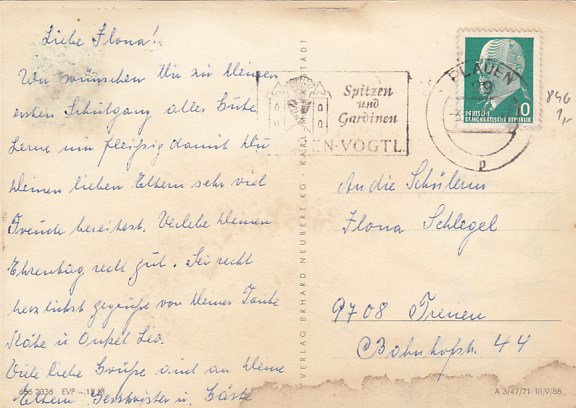 Liebe Ilona!
Wir wünschen Dir zu Deinem
ersten Schulgang alles Gute
Lerne nun fleißig damit Du
Deinen lieben Eltern sehr viel
Freude bereitest. Verlebe Deinen
Ehrentag recht gut. Sei recht
herzlichst gegrüßt von Deiner Tante
Käte u Onkel Leo.
Viele liebe Grüße auch an Deine
Eltern, Geschwister u. Gäste
696 2336 EVP
VERLAG ERHARD NEUBERT KG · KARL-MARX-STADT
Spitzen
und
Gardinen
EN·VOGTL
PLAUEN
p
10
DEUTSCHE
DEMOKRATISCHE REPUBLIK
846
1,-
An die Schülerin
Ilona Schlegel
9708 Treuen
Bahnhofstr. 44
A 3/47/71 III/9/88